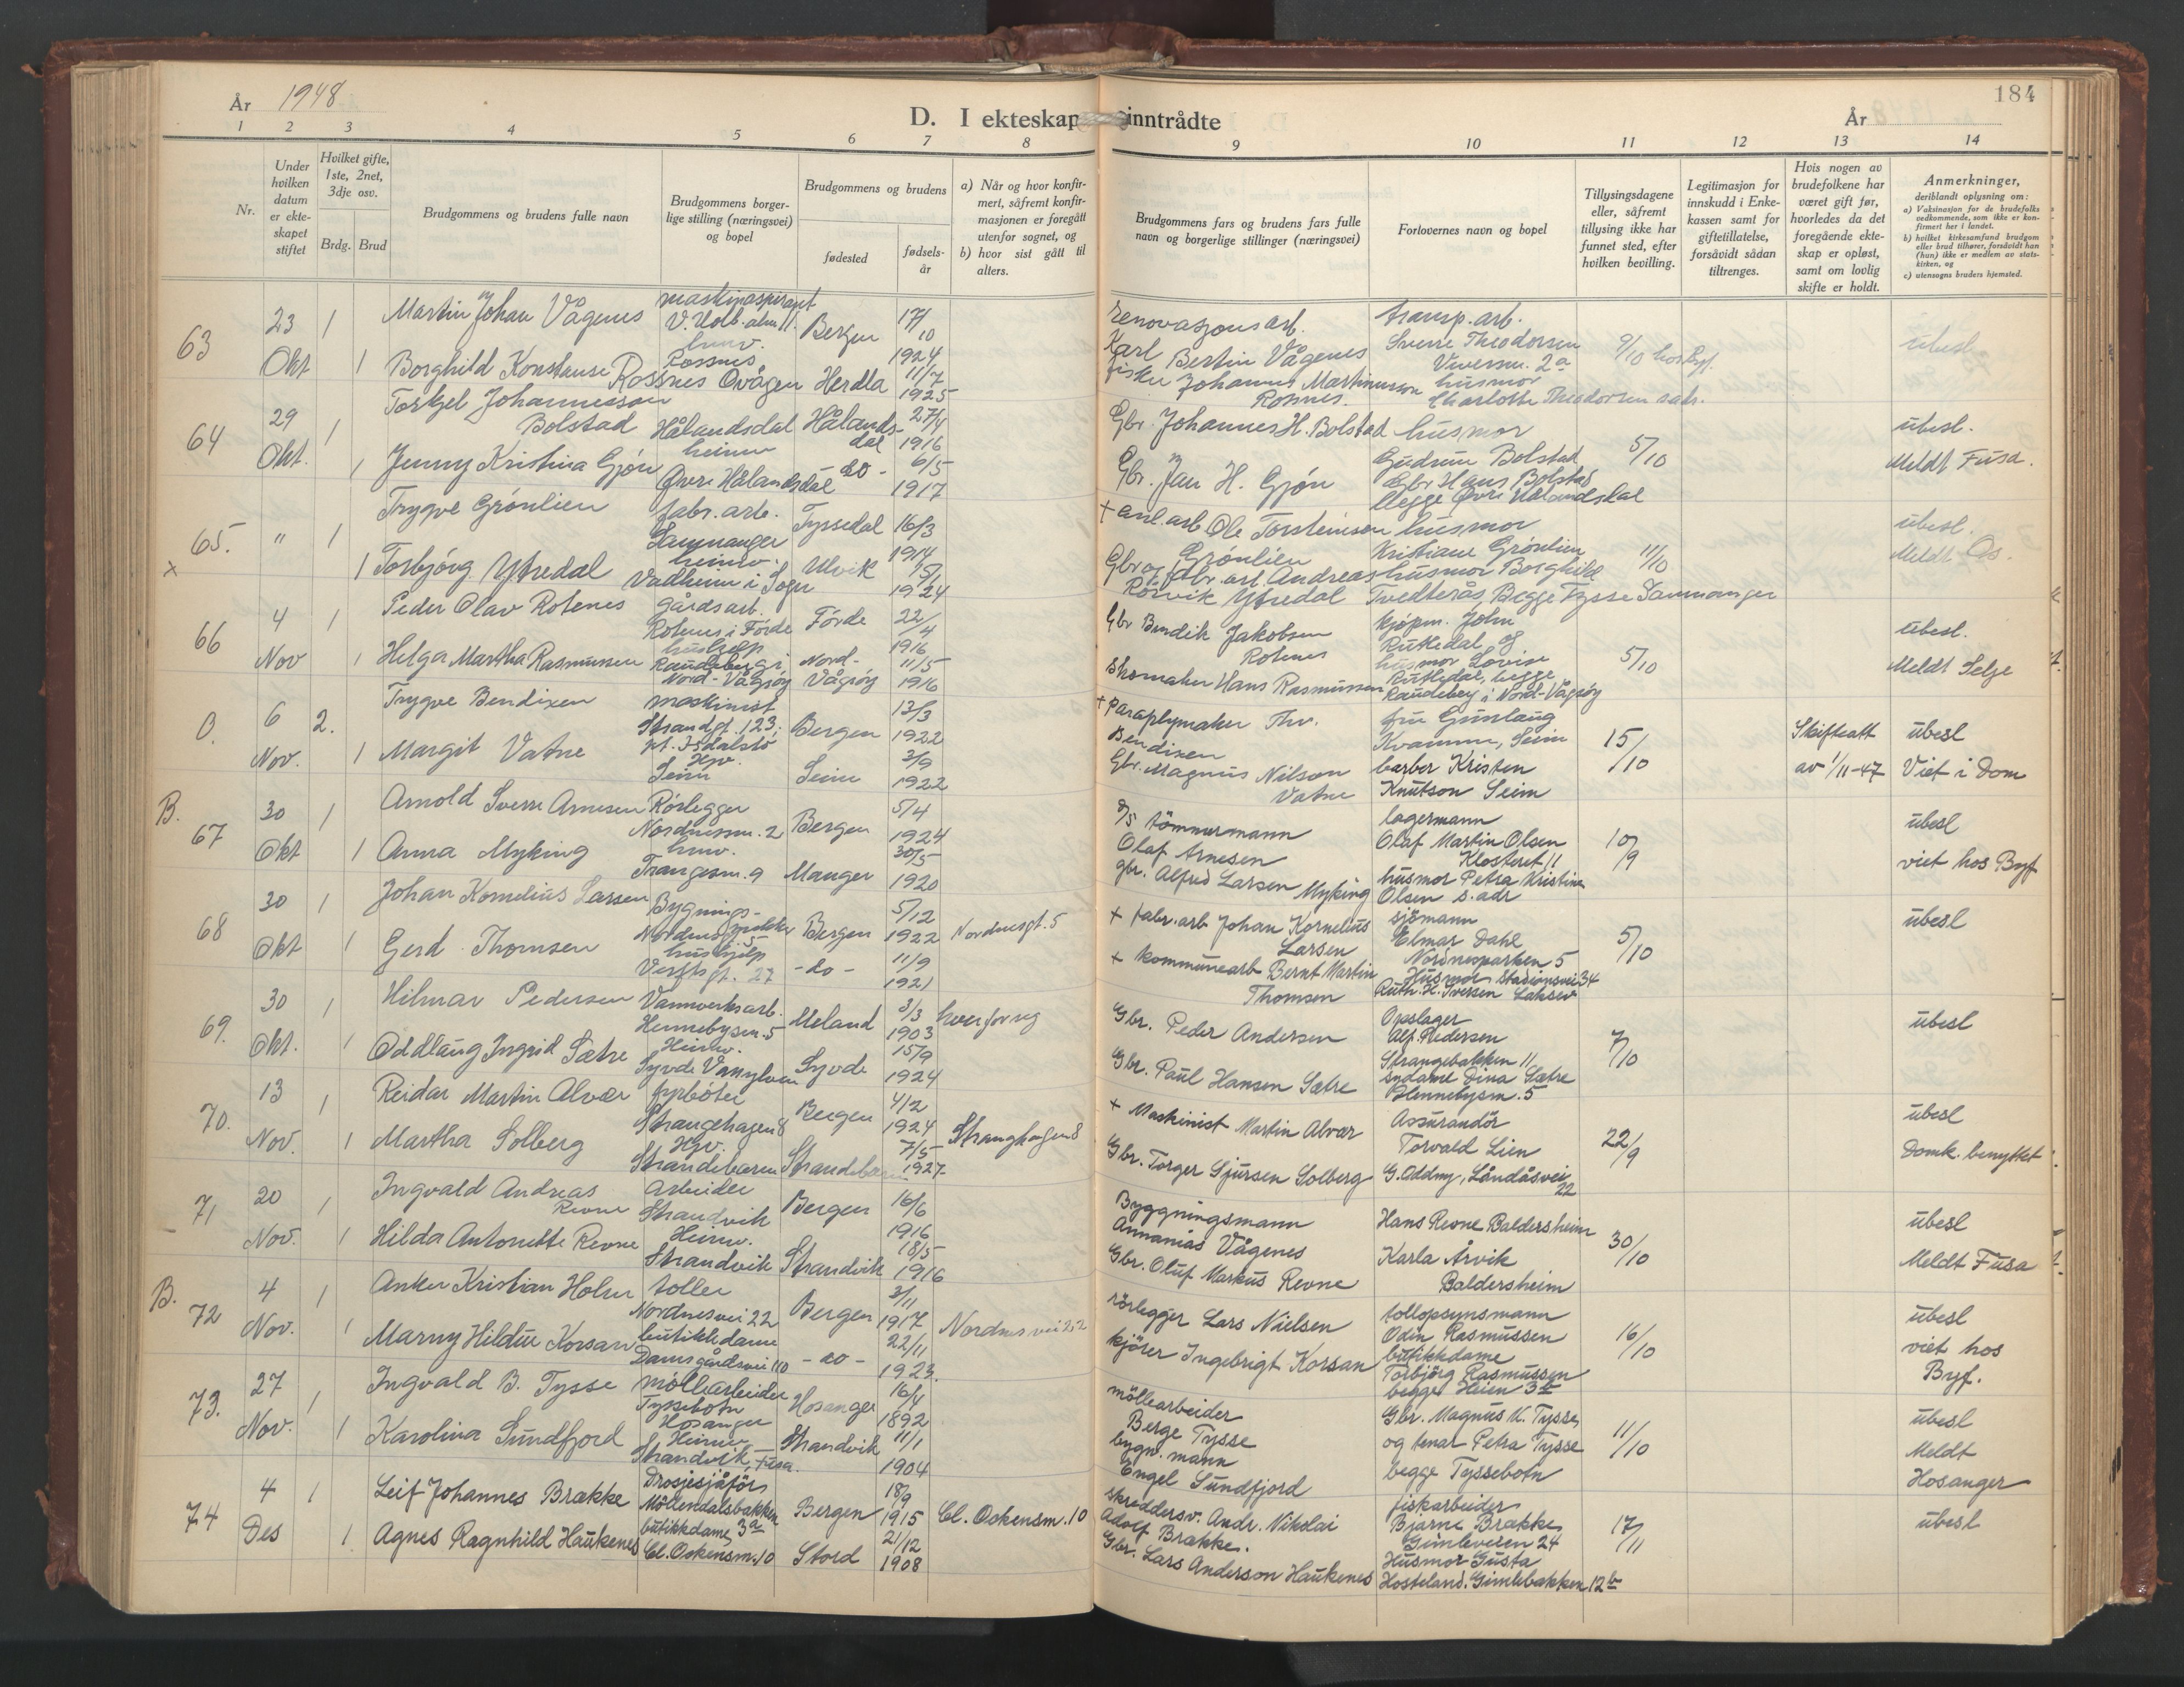 År 1948
D. I ekteskap inntrådte
År
184
1 2 3 4 5 6 7 8 9 10 11 12 13 14
Nr.
Under hvilken datum er ekteskapet stiftet
Hvilket gifte, 1ste, 2net, 3dje osv.
Brdg. Brud
Brudgommens og brudens fulle navn
Brudgommens borgerlige stilling (næringsvei) og bopel
Brudgommens og brudens
fødested
fødselsår
a) Når og hvor konfirmert, såfremt konfirmasjonen er foregått utenfor sognet, og
b) hvor sist gått til alters.
Brudgommens fars og brudens fars fulle navn og borgerlige stillinger (næringsvei)
Forlovernes navn og bopel
Tillysingsdagene eller, såfremt tillysing ikke har funnet sted, efter hvilken bevilling.
Legitimasjon for innskudd i Enkekassen samt for giftetillatelse, forsåvidt sådan tiltrenges.
Hvis nogen av brudefolkene har været gift før, hvorledes da det foregående ekteskap er opløst, samt om lovlig skifte er holdt.
Anmerkninger,
deriblandt oplysning om:
a) Vaksinasjon for de brudefolks vedkommende, som ikke er konfirmert her i landet.
b) hvilket kirkesamfund brudgom eller brud tilhører, forsåvidt han (hun) ikke er medlem av statskirken, og
c) utensogns bruders hjemsted.
63
23 Okt
1
Martin Johan Vågenes
maskinaspirant
Bergen
17/10 1924
renovasjonsarb.
Karl Bertin Vågenes
transp. arb.
Sverre Theodorsen
9/10 hos Byf.
ubesl.
1
Borghild Konstanse Rossnes
Rossnes Ovågen
Herdla
11/7 1925
fisker Johannes Martinusson Rosnes.
husmor
Charlotte Theodorsen
64
29 Okt.
1
Torkjel Johannesson Bolstad
Hålandsdal
Hålandsdal
27/4 1916
Gbr. Johannes H. Bolstad
husmor
Gudrun Bolstad
5/10
ubesl.
1
Jenny Kristina Gjøn
heimv
Øvre Hålandsdal
-do-
6/5 1917
Gbr. Jan H. Gjøn
Gbr Hans Bolstad
Begge Øvre Hålandsdal
Meldt Fusa.
65.
x
"
1
Trygve Grønlien
fabr. arb.
Samnanger
Tyssedal
16/3 1914
+ anl. arb Ole Torsteinson Grønlien
husmor
Kristiane Grønlien
11/10
ubesl.
1
Torbjørg Ytredal
heimv.
Vadheim i Sogn
Ulvik
15/1 1924
Gbr og fabr. arb. Andreas Rørvik Ytredal
husmor Borghild Tvedterås, Begge Tysse Samnanger
Meldt Os.
66
4 Nov
1
Peder Olav Rotenes
Gårdsarb.
Rotenes i Førde
Førde
22/4 1916
Gbr Bendik Jakobsen Rotenes
kjøpm. John Rutledal og
5/10
ubesl.
1
Helga Martha Rasmussen
hushjelp
Raudeberg i Nord-Vågsøy
Nord-Vågsøy
11/5 1916
Skomaker Hans Rasmussen
husmor Lovise Rutledal, begge
Raudeberg i Nord-Vågsøy
Meldt Selje
0.
6 Nov.
2.
Trygve Bendixen
maskinist
Strandgt. 123.
pt. Isdalstø
Bergen
13/3 1922
+ Paraplymaker Thv. Bendixen
fru Gunlaug Kvamme, Seim
15/10
Skifteatt av 1/11-47
ubesl
Viet i Dom
1
Margit Vatne
Hjv.
Seim
Seim
3/9 1922
Gbr. Magnus Nilson Vatne
barber Kristen Knutson Seim
B.
67
30 Okt
1
Arnold Sverre Arnesen
Rørlegger
Nordnessm. 2
Bergen
5/4 1924
tømmermann
Olaf Arnesen
lagermann
Olaf Martin Olsen
Klosteret 11
10/9
ubesl
1
Anna Myking
hmv.
Trangesm. 9
Manger
30/5 1920
gbr. Alfred Larsen Myking
husmor Petra Kristine Olsen s. adr
viet hos Byf
68
30 Okt
1
Johan Kornelius Larsen
Bygnings-
Bergen
5/12 1922
Nordnesgt. 5
+ fabr. arb Johan Kornelius Larsen
sjømann
Elmar Dahl
Nordnesparken 5
5/10
ubesl
1
Gerd Thomsen
hushjelp
Verftsgt. 27
-do-
11/9 1921
+ Kommunearb Bernt Martin Thomsen
Husmor Stadionsvei 34
Ruth. H. Iversen Laksev
69.
30 Okt.
1
Hilmar Pedersen
Vannverksarb.
Hennebysm. 5
Meland
3/3 1903
hver for seg
Gbr. Peder Andersen
Opslager
Alf. Pedersen
Strangebakken 11
7/10
ubesl
1
Oddlaug Ingrid Sætre
Heimv.
Syvde Vanylven
Syvde
15/9 1924
Gbr. Paul Hansen Sætre
sydame Dina Sætre
Hennebysm. 5
70.
13 Nov.
1
Reidar Martin Alvær
fyrbøter
Strangehagen 8
Bergen
4/2 1924
Stranghagen 8
+ Maskinist Martin Alvær
Assurandør
Torvald Lien
22/9
ubesl
1
Martha Solberg
Hjv.
Strandebarm
Strandebarm
7/5 1927
Gbr. Torger Sjursen Solberg
G. Oddny, Låndåsvei 22
Domk. benyttet
71
20 Nov.
1
Ingvald Andreas Revne
Arbeider
Strandvik
Bergen
16/6 1916
Byggningsmann
Annanias Vågenes
Hans Revne Baldersheim
30/10
ubesl
1
Hilda Antonette Revne
Heimv.
Strandvik
Strandvik
18/5 1916
Gbr. Oluf Markus Revne
Karla Årvik
Baldersheim
Meldt Fusa
B.
72
4 Nov.
1
Anker Kristian Holm
toller
Nordnesvei 22
Bergen
3/11 1917
Nordnesvei 22
rørlegger Lars Nielsen
tollopsynsmann
Odin Rasmussen
16/10
ubesl
1
Marny Hildur Korsan
butikkdame
Damsgårdsvei 110
-do-
22/11 1923.
kjører Ingebrigt Korsan
butikkdame
Torbjørg Rasmussen
viet hos Byf.
73.
27 Nov.
1
Ingvald B. Tysse
møllearbeider
Tyssebotn
Hosanger
Hosanger
16/4 1892
møllearbeider
Berge Tysse
Gbr. Magnus K. Tysse
11/10
ubesl
1
Karolina Sundfjord
Heimv
Strandvik, Fusa.
Strandvik
11/1 1904
bygn. mann
Engel Sundfjord
og tenar Petra Tysse
begge Tyssebotn
Meldt Hosanger
74
4 Des
1
Leif Johannes Brække
Drosjesjåfør
Møllendalsbakken 3a
Bergen
18/9 1915
Cl. Ockensm. 10
skreddersv. Andr. Nikolai Adolf Brække.
fiskarbeider
Bjarne Brække
Gimleveien 24
17/11
ubesl
1
Agnes Ragnhild Haukenes
butikkdame
Cl. Ockensm. 10
Stord
21/12 1908
Gbr. Lars Anderson Haukenes
Husmor Gusta
Hosteland. Gimlebakken 12b